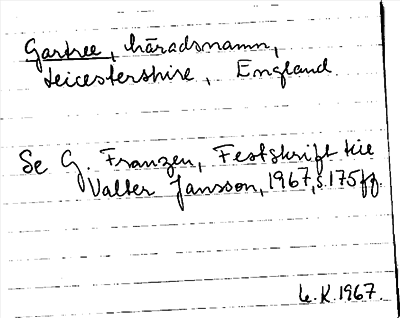 Gartree, häradsnamn,
Leicestershire, England.
Se G. Franzén, Festskrift till
Valter Jansson, 1967, s. 175 ff.
L.K. 1967.